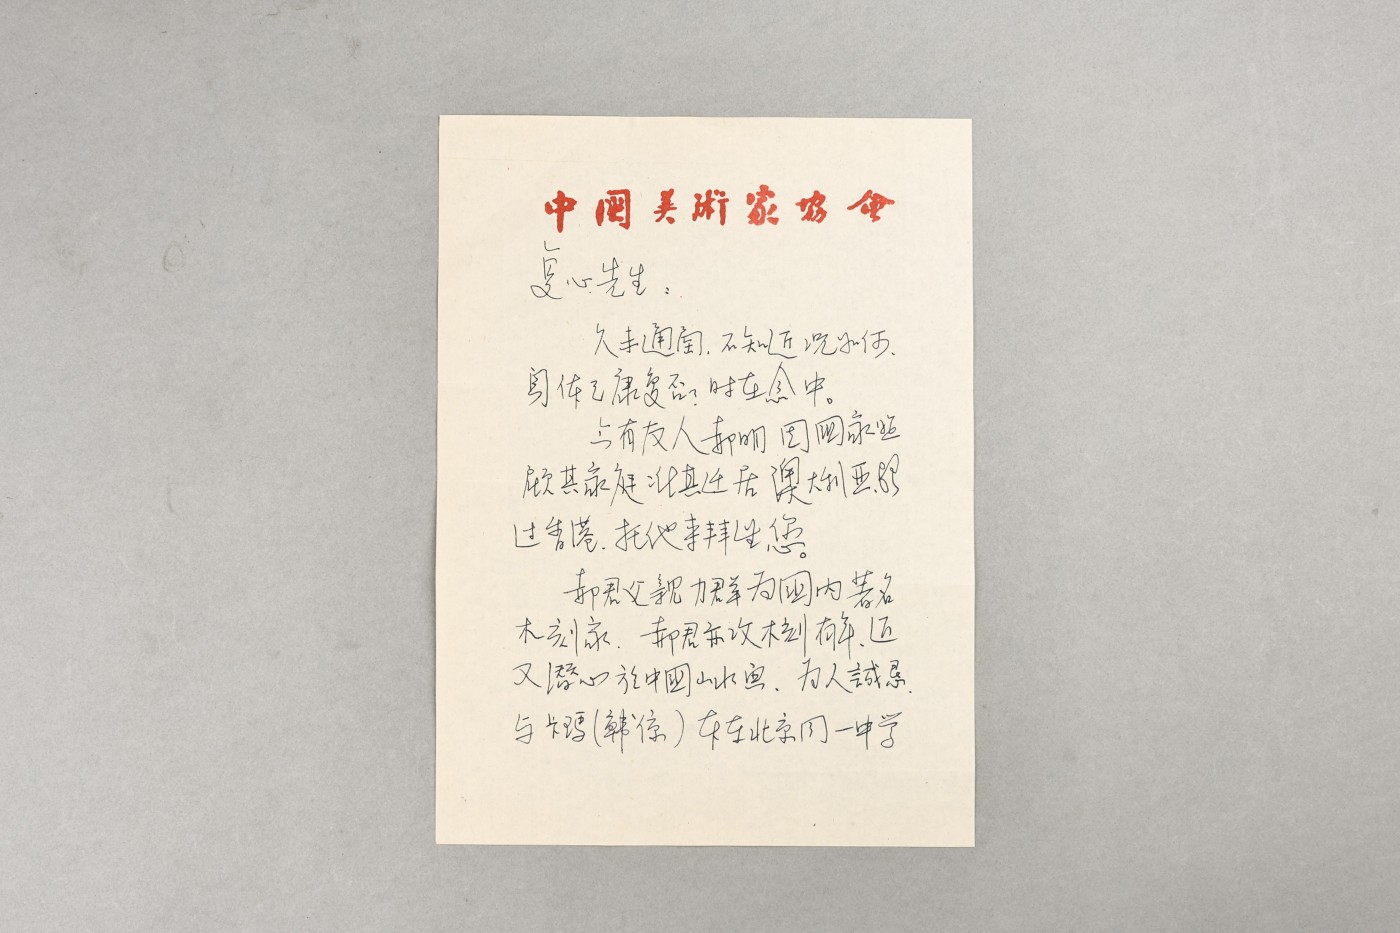 中国美術家協会
复心先生：
久未通函、不知近况如何、
身体已康复否？时在念中。
今有友人郝明因国家照
顾其家庭准其迁居澳大利亚、路
过香港、托他来拜望您。
郝君父親力群为国内著名
木刻家、郝君亦攻木刻有年、近
又潛心於中国山水画、为人誠恳、
与卡玛（韩倞）本在北京同一中学